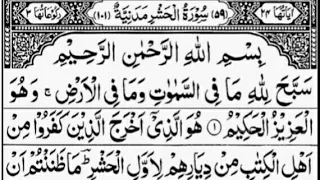 اٰیَاتُهَا ٢٤ (٥٩) سُوْرَةُ الْحَشْرِ مَدَنِیَّةٌ (١٠١) رُكُوْعَاتُهَا ٣
بِسْمِ اللّٰهِ الرَّحْمٰنِ الرَّحِیْمِ
سَبَّحَ لِلّٰهِ مَا فِی السَّمٰوٰتِ وَمَا فِی الْاَرْضِ ۚ وَهُوَ
الْعَزِیْزُ الْحَكِیْمُ ۝١ هُوَ الَّذِیْۤ اَخْرَجَ الَّذِیْنَ كَفَرُوْا مِنْ
اَهْلِ الْكِتٰبِ مِنْ دِیَارِهِمْ لِاَوَّلِ الْحَشْرِ ؕ مَا ظَنَنْتُمْ اَنْ